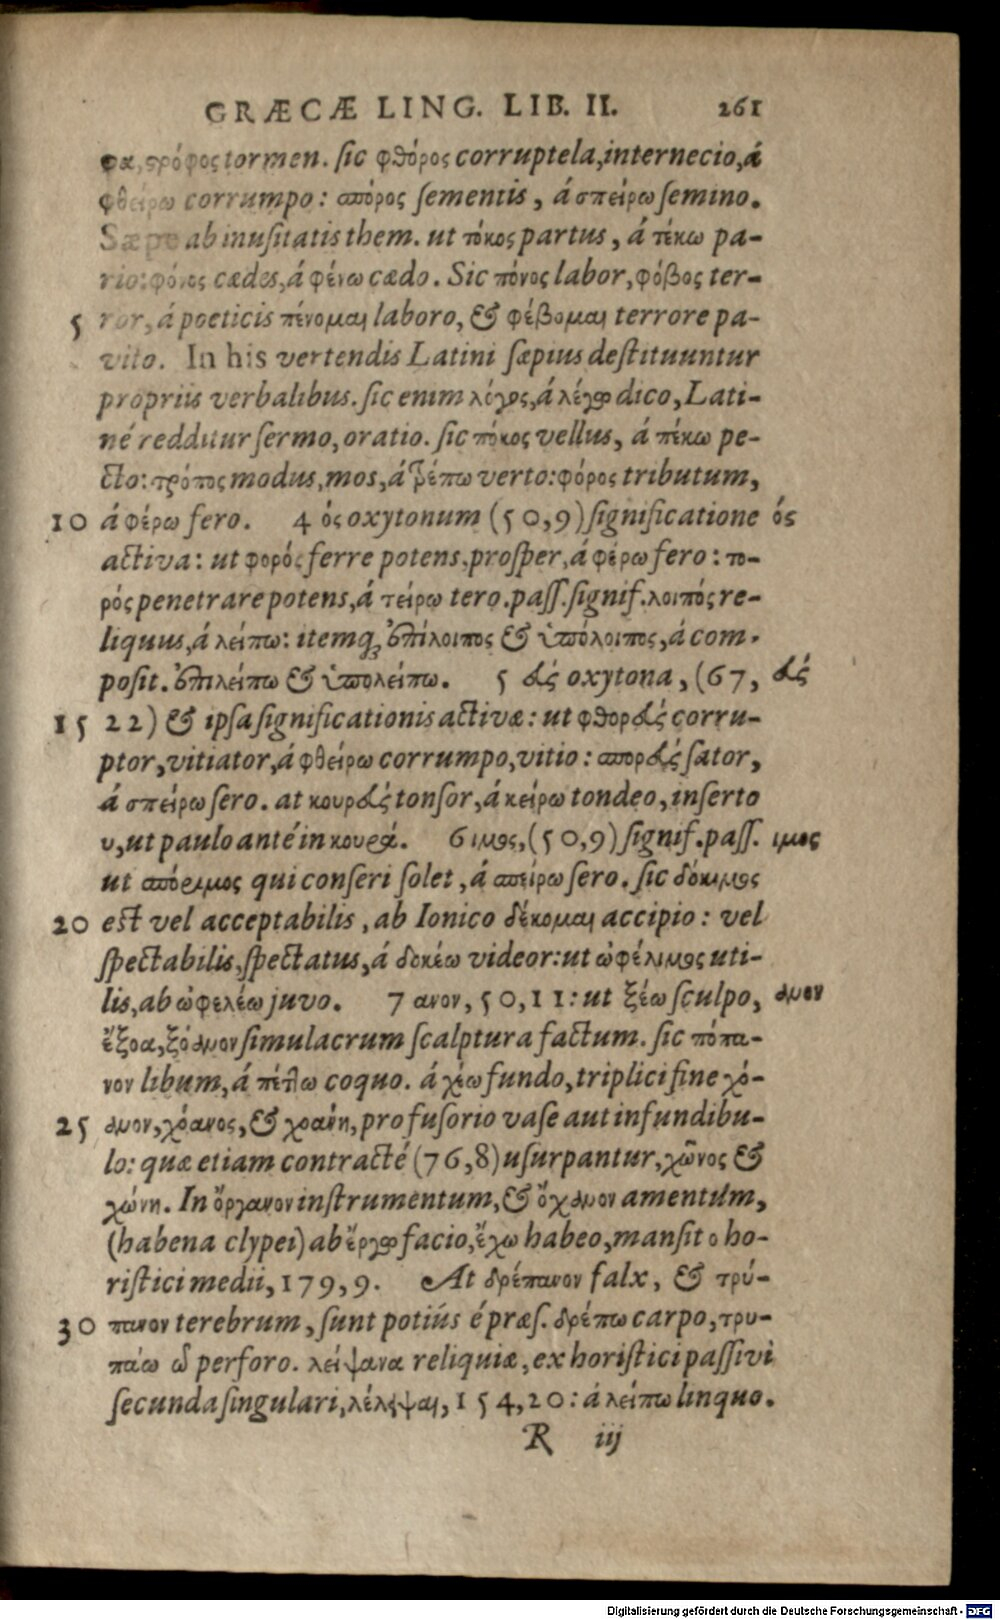 GRÆCÆ LING. LIB. II. 261
φα, στρόφος tormen. sic φθόρος corruptela, internecio, á
φθείρω corrumpo: σπόρος sementis, á σπείρω semino.
Sæpe ab inusitatis them. ut τόκος partus, á τέκω pa-
rio: φόνος cædes, á φένω cædo. Sic πόνος labor, φόβος ter-
5 ror, á poeticis πένομαι laboro, & φέβομαι terrore pa-
vito. In his vertendis Latini sæpius destituuntur
propriis verbalibus. sic enim λόγος, á λέγω dico, Lati-
né redditur sermo, oratio. sic πόκος vellus, á πέκω pe-
cto: τρόπος modus, mos, á τρέπω verto: φόρος tributum,
10 á φέρω fero. 4 ός oxytonum (50,9) significatione ός
activa: ut φορός ferre potens, prosper, á φέρω fero: το-
ρός penetrare potens, á τείρω tero. pass. signif. λοιπός re-
liquus, á λείπω: itemq; ἐπίλοιπος & ὑπόλοιπος, á com-
posit. ἐπιλείπω & ὑπολείπω. 5 άς oxytona, (67, άς
15 22) & ipsa significationis activæ: ut φθοράς corru-
ptor, vitiator, á φθείρω corrumpo, vitio: σποράς sator,
á σπείρω sero. at κουράς tonsor, á κείρω tondeo, inserto
υ, ut paulo anté in κουρά. 6 ιμος, (50,9) signif. pass. ιμος
ut σπόριμος qui conseri solet, á σπείρω sero. sic δόκιμος
20 est vel acceptabilis, ab Ionico δέκομαι accipio: vel
spectabilis, spectatus, á δοκέω videor: ut ὠφέλιμος uti-
lis, ab ὠφελέω juvo. 7 ανον, 50,11: ut ξέω sculpo, ανον
ἔξοα, ξόανον simulacrum scalptura factum. sic πόπα-
νον libum, á πέπτω coquo. á χέω fundo, triplici fine χό-
25 ανον, χόανος, & χοάνη, pro fusorio vase aut infundibu-
lo: quæ etiam contracté (76,8) usurpantur, χῶνος &
χώνη. In ὄργανον instrumentum, & ὄχανον amentum,
(habena clypei) ab ἔργω facio, ἔχω habeo, mansit ο ho-
ristici medii, 179,9. At δρέπανον falx, & τρύ-
30 πανον terebrum, sunt potiús é præs. δρέπω carpo, τρυ-
πάω ῶ perforo. λείψανα reliquiæ, ex horistici passivi
secunda singulari, λέλειψαι, 154,20: á λείπω linquo.
R iij
Digitalisierung gefördert durch die Deutsche Forschungsgemeinschaft - DFG